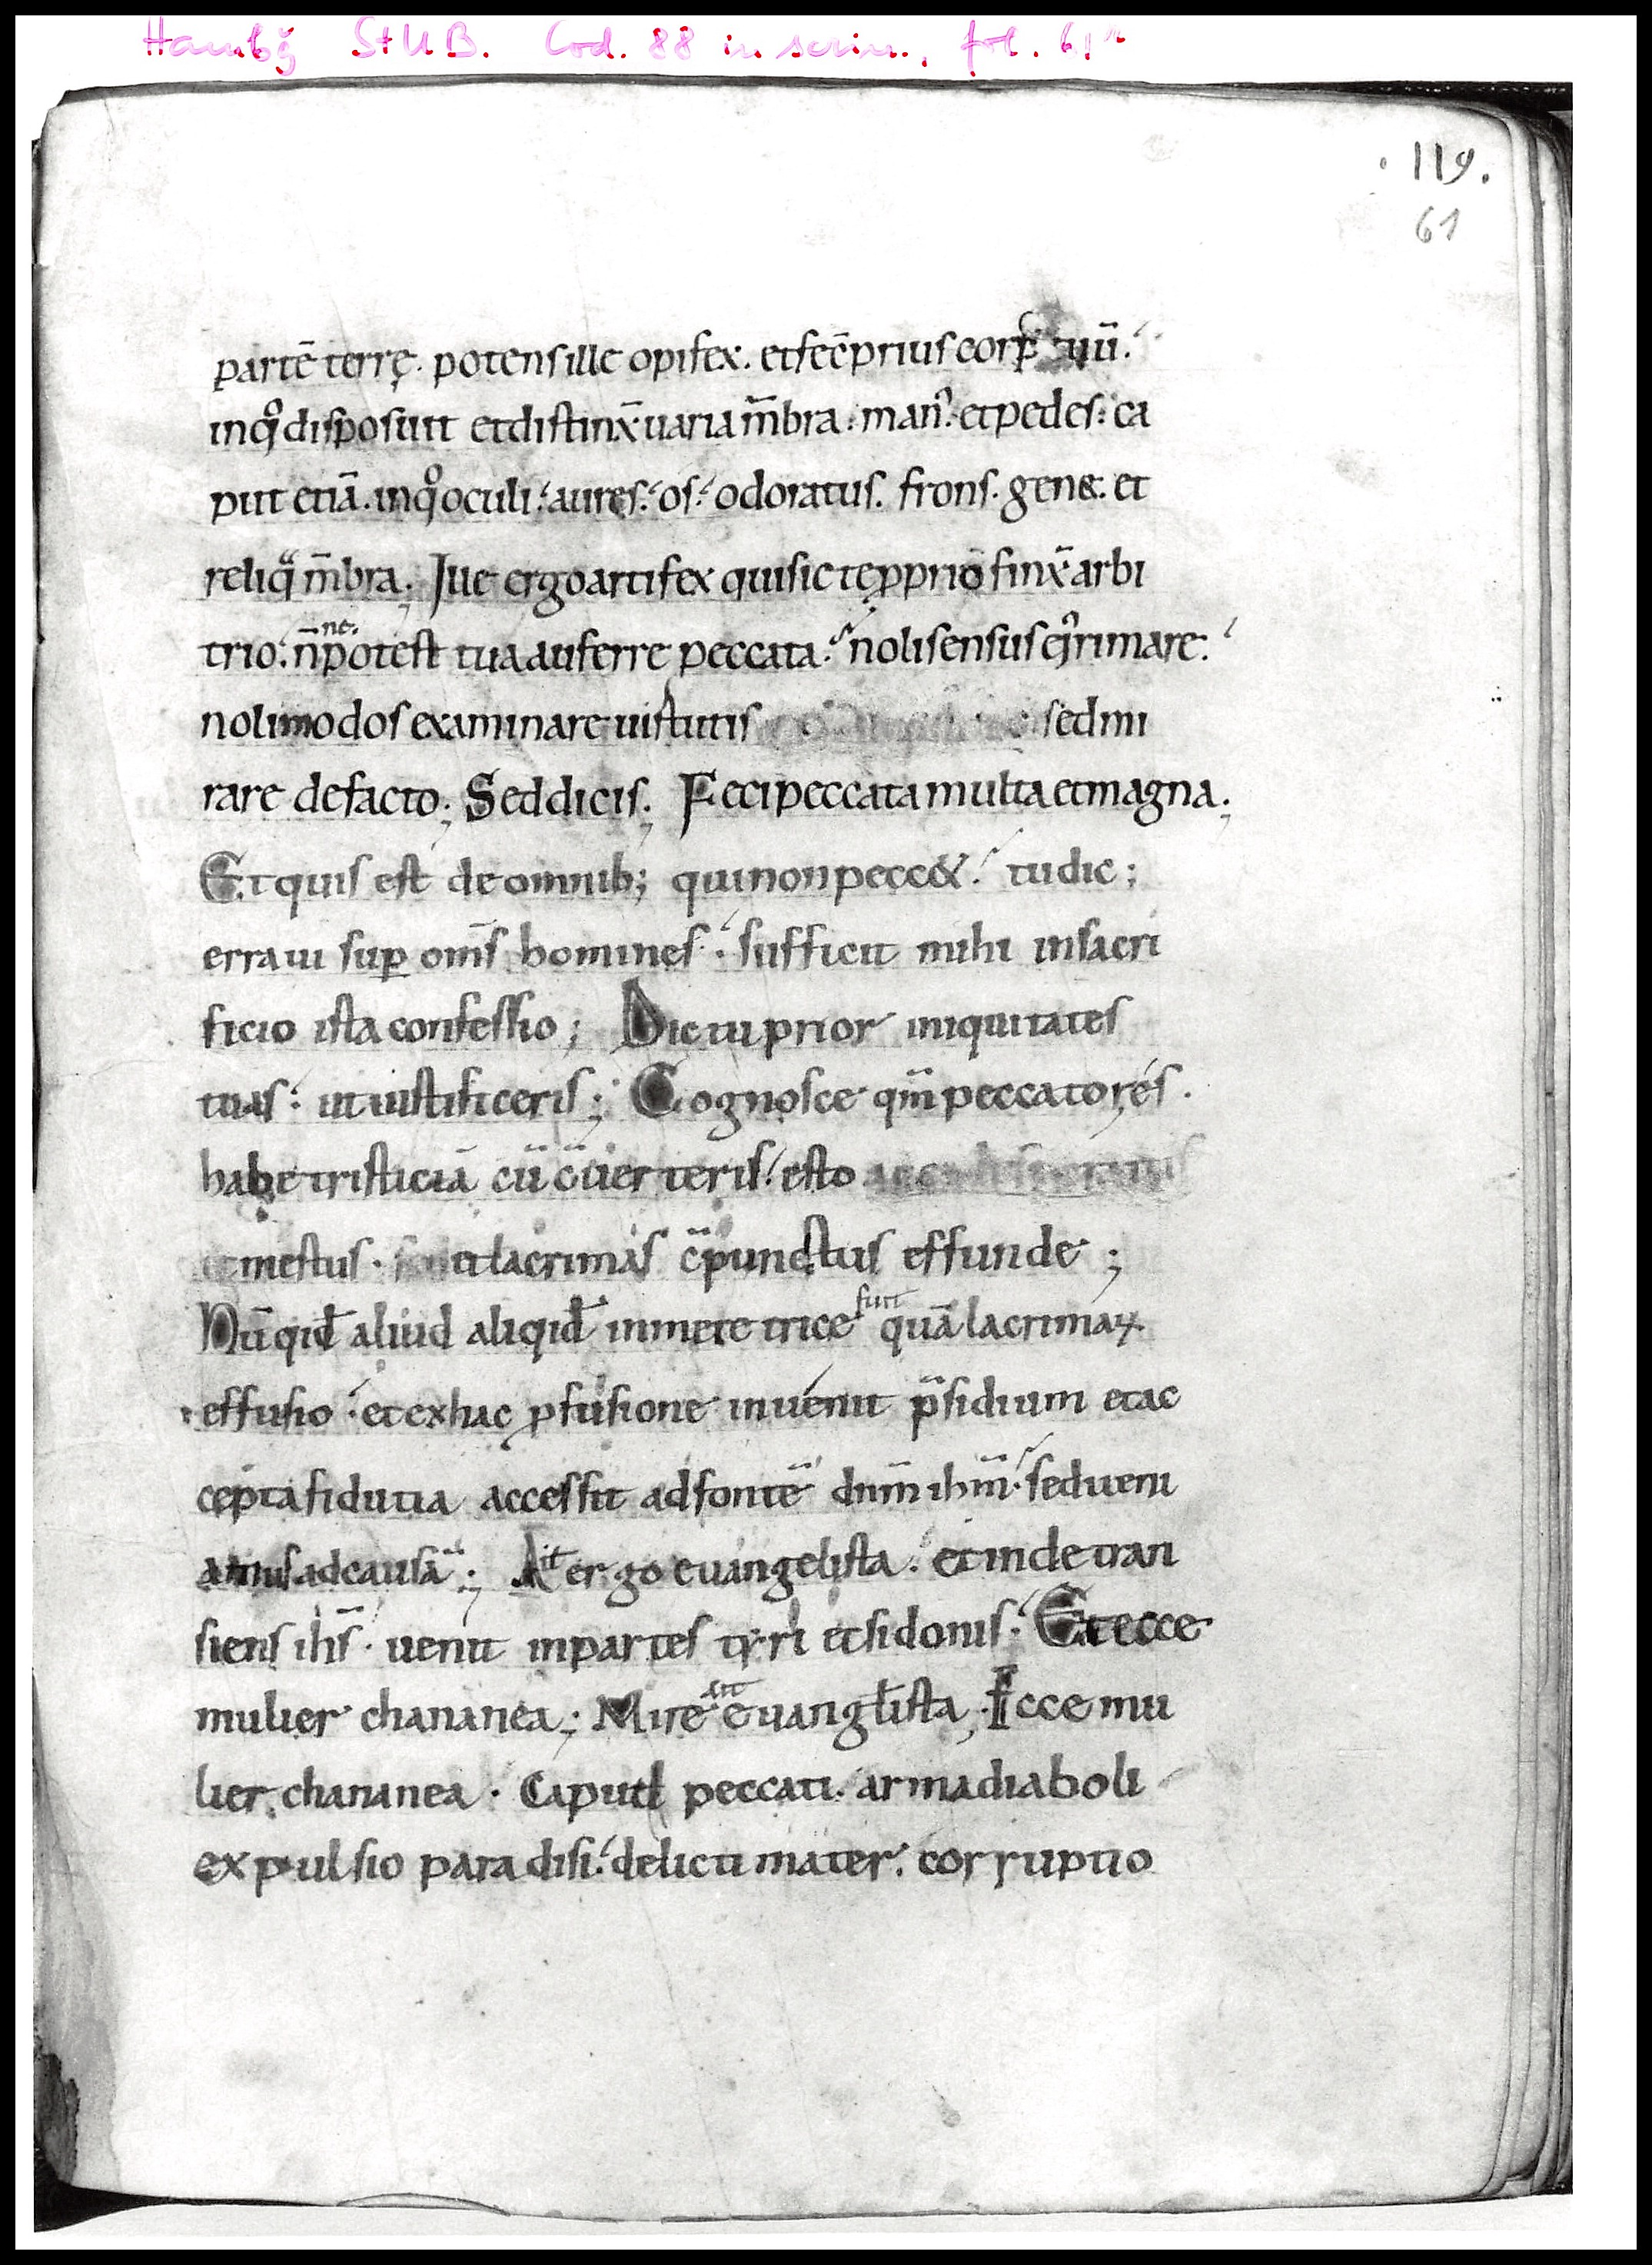 Hambg StUB. Cod. 88 in scrin., fol. 61r
·119.
61
partē terrę. potens ille opifex. et fec̄ prius corp tuū.
in qͦ disposuit et distinx̄ uaria m̄bra: man᷒. et pedes: ca
put etiā. in qͦ oculi. aures. os. odoratus. frons. genæ. et
reliqͣ m̄bra; Ille ergo artifex qui sic te ꝓprio finx̄ arbi
trio. n̄ne potest tua auferre peccata. noli sensus eiꝰ rimare.
noli modos examinare uirtutis sed mi
rare de facto; Sed dicis; Feci peccata multa et magna;
Et quis est de omnib; qui non pecc&. tu dic;
erraui sup om̄s homines. sufficit mihi in sacri
ficio ista confessio; Dic tu prior iniquitates
tuas: ut iustificeris; Cognosce qm̄ peccatores.
habe tristiciā cū c̄uerteris. esto
mestus. et lacrimas c̄punctus effunde;
Nūqid aliud aliqid in meretrice fuit quā lacrimaꝝ
effusio. et ex hac ꝓfusione inuenit p̄sidium et ac
cepta fidutia accessit ad fontē dn̄m ihm̄. sed ueni
amus ad causā; Ait ergo euangelista. et inde tran
siens ihs̄. uenit in partes tyri et sidonis. Et ecce
mulier chananea; Mire sit euanglista; Ecce mu
lier chananea. Caput peccati. arma diaboli
expulsio paradisi. delicti mater. corruptio